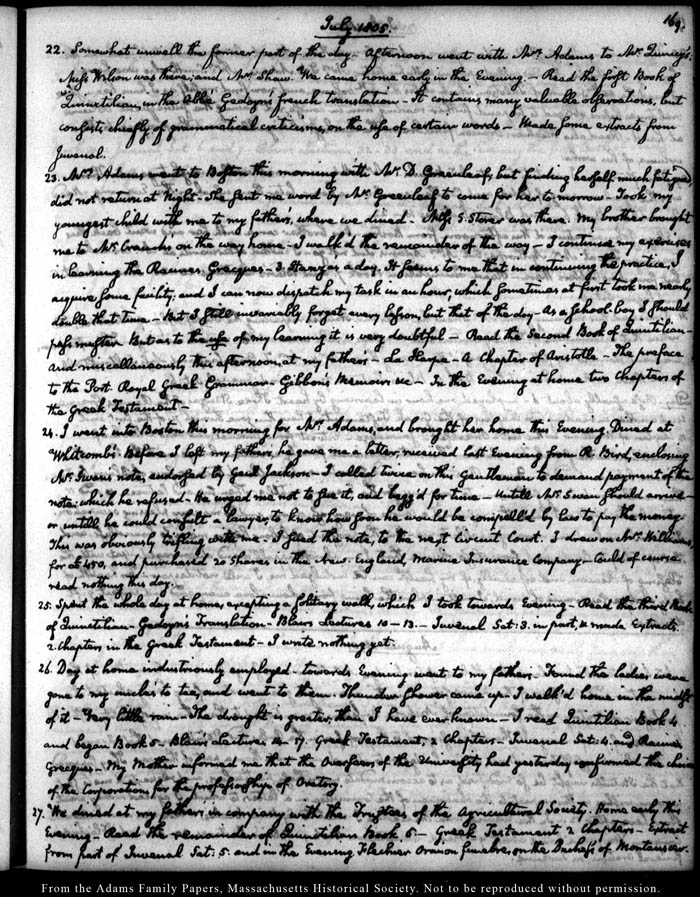 July 1805.
169.
22. Somewhat unwell the former part of the day. Afternoon went with Mrs. Adams to Mr. Quincy's.
Miss Wilson was there; and Mr. Shaw. We came home early in the Evening. — Read the first Book of
Quinctilian, in the Abbé Gedoyn's french translation — It contains many valuable observations, but
consists chiefly of grammatical criticisms, on the use of certain words — Made some extracts from
Juvenal.
23. Mrs. Adams went to Boston this morning with Mr. D. Greenleaf, but finding herself much fatigued
did not return at Night. She sent me word by Mr. Greenleaf to come for her to-morrow. Took my
youngest child with me to my father's, where we dined. Miss S. Storer was there. My brother brought
me to Mr. Cranch's on the way home. I walk'd the remainder of the way — I continue my exercises
in learning the Racines Grecques — 3. Stanzas a day. It seems to me that in continuing the practice, I
acquire some facility; and I can now dispatch my task in an hour, which sometimes at first took me nearly
double that time — But I still invariably forget every lesson, but that of the day — As a school-boy I should
pass muster. But as to the use of my learning it is very doubtful — Read the Second Book of Quintilian
and miscellaneously this afternoon, at my father's — La Harpe — A Chapter of Aristotle — The preface
to the Port Royal Greek Grammar — Gibbon's Memoirs &c — In the Evening at home two Chapters of
the Greek Testament —
24. I went into Boston this morning for Mrs. Adams, and brought her home this Evening. Dined at
Whitcomb's. Before I left my father's, he gave me a letter, received last Evening from R. Bird, enclosing
Mr. Swan's note, endorsed by Genl. Jackson — I called twice on this Gentleman to demand payment of the
note; which he refused — He urged me not to sue it, and begg'd for time — Untill Mr. Swan should arrive
or untill he could consult a lawyer, to know how soon he would be compell'd by law to pay the money
This was obviously trifling with me. I sued the note, to the next Circuit Court. I drew on Mr. Williams,
for £ 450, and purchased 20 shares in the New England, Marine Insurance Company — Could of course
read nothing this day.
25. Spent the whole day at home, excepting a solitary walk, which I took towards Evening — Read the third Book
of Quintilian — Gedoyn's Translation — Blair's Lectures 10 – 13. — Juvenal Sat: 3. in part, & made Extracts.
2. Chapters in the Greek Testament — I write nothing yet.
26. Day at home industriously employed — towards Evening went to my father's. Found the ladies were
gone to my uncle's to tea, and went to them. Thunder shower came up — I walk'd home in the midst
of it — Very little rain — The drought is greater, than I have ever known — I read Quintilian Book 4
and began Book 5 — Blair's Lectures 14 – 17. Greek Testament, 2 Chapters — Juvenal Sat: 4. and Racines
Grecques — My Mother informed me that the Overseers of the University had yesterday confirmed the choice
of the Corporation for the professorship of Oratory.
27. We dined at my father's in company with the Trustees of the Agricultural Society. Home early this
Evening — Read the remainder of Quintilian Book 5. — Greek Testament 2 Chapters — Extract
from part of Juvenal Sat: 5. and in the Evening Flechier Oraison funebre, on the Duchess of Montausier.
From the Adams Family Papers, Massachusetts Historical Society. Not to be reproduced without permission.